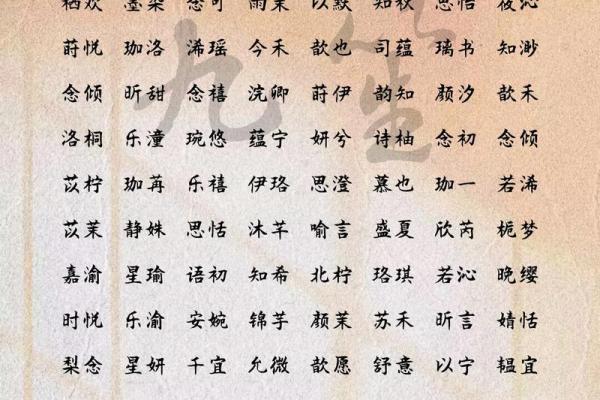 栖欢 墨染 念可 雨茉 以默 知秋 思恬 筱沁
莳悦 珈洛 浠瑶 今禾 歆也 司蕴 瑀书 知渺
念倾 昕甜 念禧 浣卿 莳伊 韵知 颜汐 歆禾
洛桐 乐潼 琬悠 蕴宁 妍兮 诗柚 念初 念倾
苡柠 珈苒 乐禧 伊珞 思澄 慕也 珈一 若浠
苡茉 静姝 思恬 沐芊 喻言 盛夏 欣芮 栀梦
嘉渝 星瑜 语初 知希 北柠 珞琪 若沁 晚缨
时悦 乐渝 安婉 锦芋 颜茉 苏禾 昕言 婧恬
梨念 星妍 千宜 允微 歆愿 舒意 以宁 韫宜
九笙